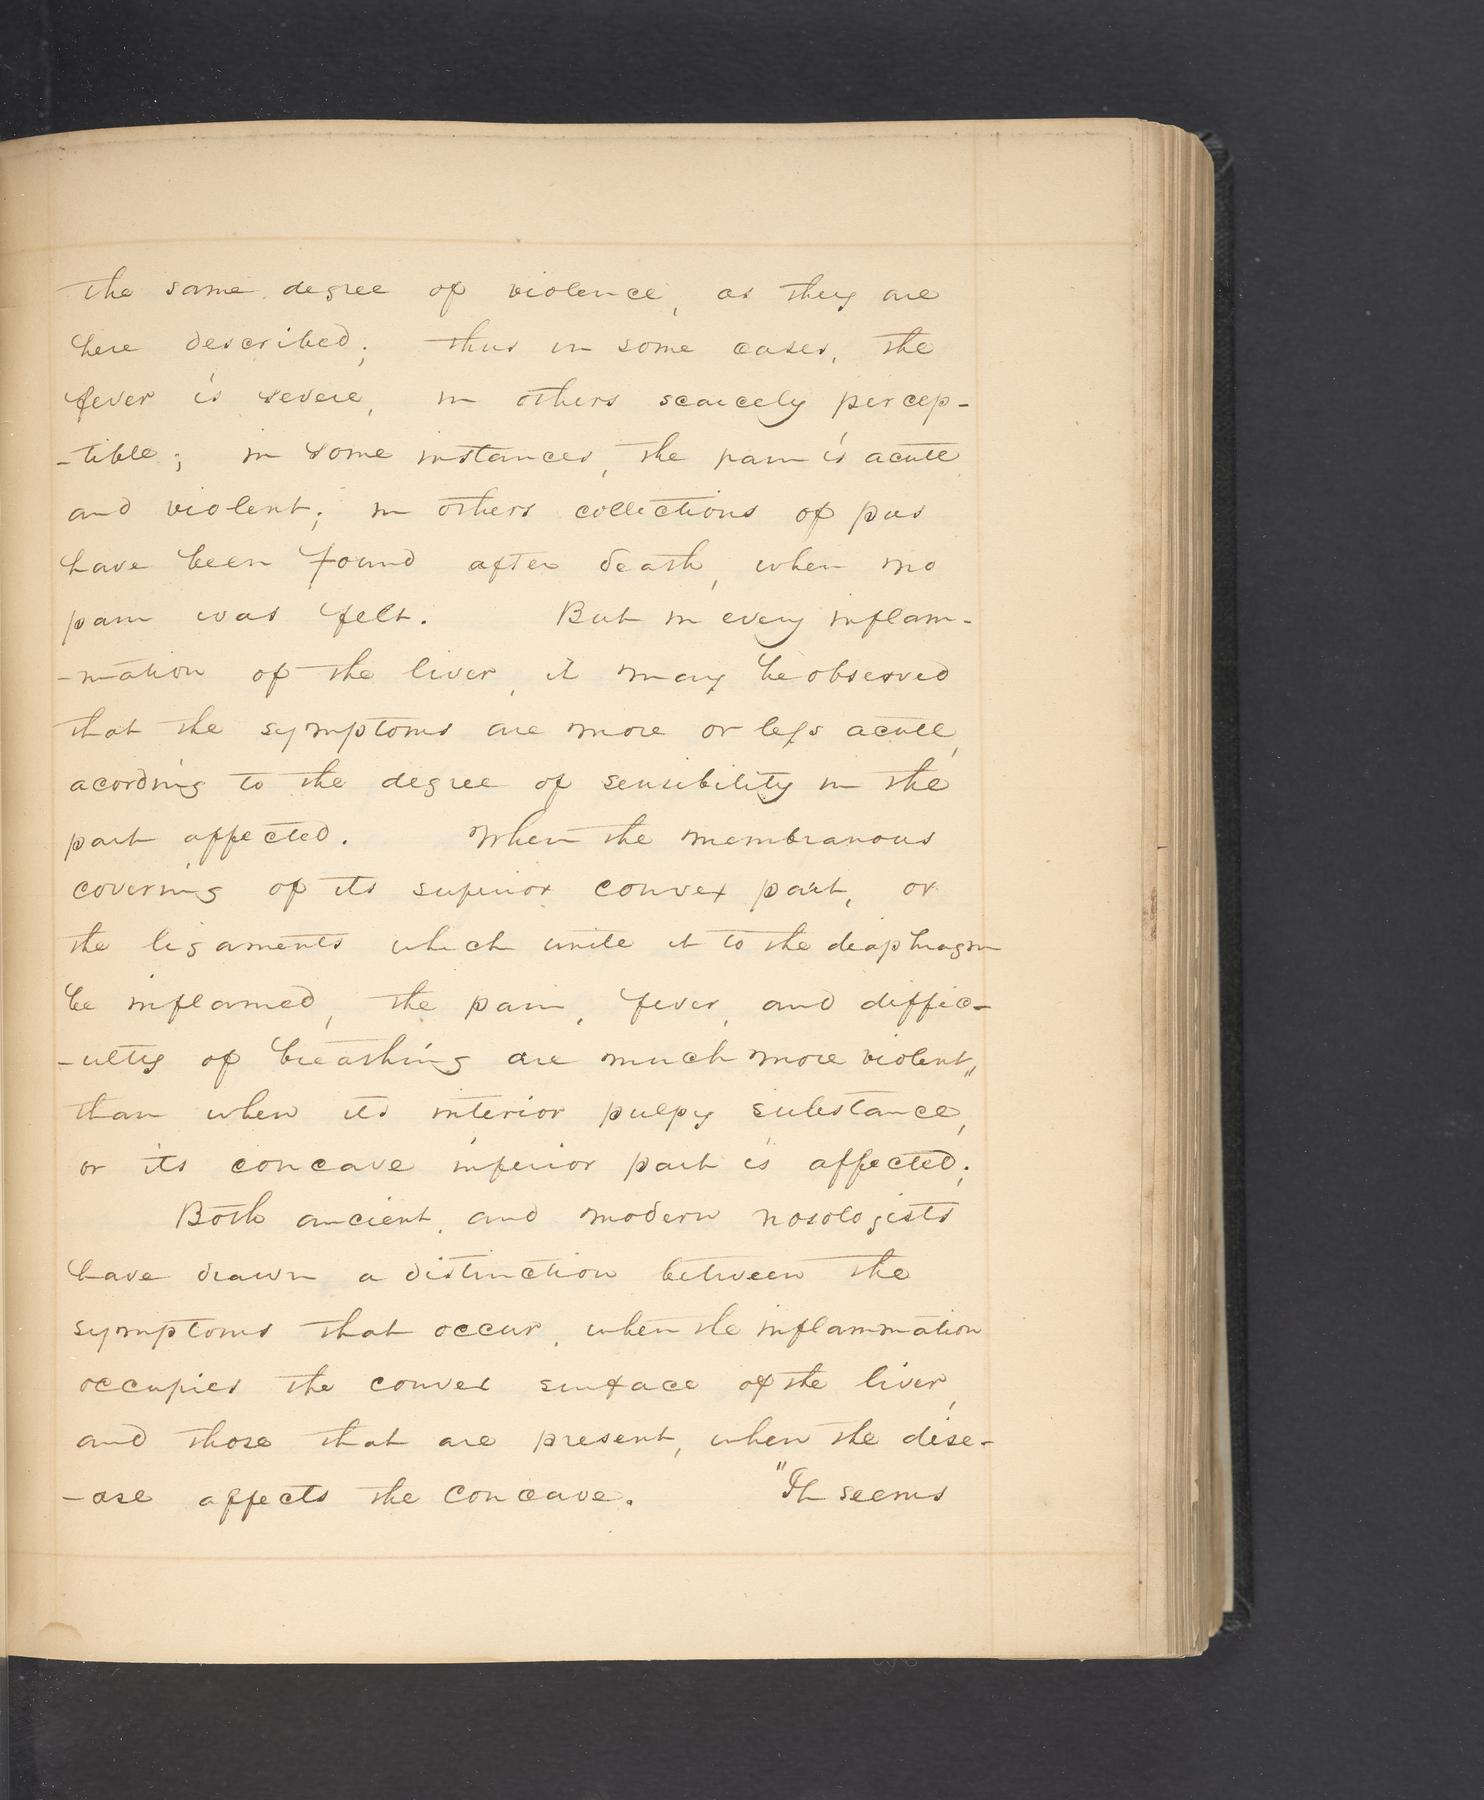 the same degree of violence, as they are
here described; thus in some cases, the
fever is severe, in others scarcely percep-
-tible; in some instances, the pain is acute
and violent; in others collections of pus
have been found after death, when no
pain was felt. But in every inflam-
-mation of the liver, it may be observed
that the symptoms are more or less acute,
acording to the degree of sensibility in the
part affected. When the membranous
covering of its superior convex part, or
the ligaments which unite it to the diaphragm
be inflamed, the pain, fever, and diffic-
-ulty of breathing are much more violent,"
than when its interior pulpy substance,
or its concave inferior part is affected;
Both ancient, and modern nosologists
have drawn a distinction between the
symptoms that occur, when the inflammation
occupies the convex surface of the liver,
and those that are present, when the dise-
-ase affects the concave. "It seems